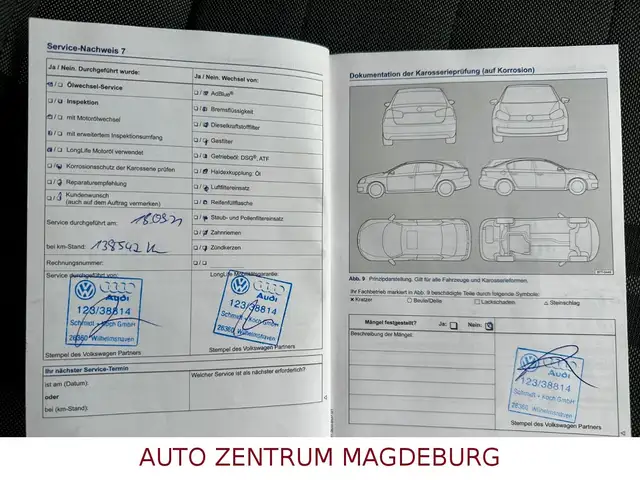 Service-Nachweis 7
Ja / Nein. Durchgeführt wurde:
Ölwechsel-Service
Inspektion
mit Motorölwechsel
mit erweitertem Inspektionsumfang
LongLife Motoröl verwendet
Korrosionsschutz der Karosserie prüfen
Reparaturempfehlung
Kundenwunsch
(auch auf dem Auftrag vermerken)
Service durchgeführt am: 18.03.21
bei km-Stand: 138542 km
Rechnungsnummer:
Service durchgeführt von:
Audi
123/38814
Schmidt + Koch GmbH
26360 Wilhelmshaven
Stempel des Volkswagen Partners
Ja / Nein. Wechsel von:
AdBlue®
Bremsflüssigkeit
Dieselkraftstofffilter
Gasfilter
Getriebeöl: DSG®, ATF
Haldexkupplung: Öl
Luftfiltereinsatz
Reifenfüllflasche
Staub- und Pollenfiltereinsatz
Zahnriemen
Zündkerzen
LongLife Mobilitätsgarantie:
Audi
123/38814
Schmidt + Koch GmbH
26360 Wilhelmshaven
Stempel des Volkswagen Partners
Ihr nächster Service-Termin
ist am (Datum):
oder
bei (km-Stand):
Welcher Service ist als nächster erforderlich?
Dokumentation der Karosserieprüfung (auf Korrosion)
Abb. 9 Prinzipdarstellung. Gilt für alle Fahrzeuge und Karosserieformen.
Ihr Fachbetrieb markiert in Abb. 9 beschädigte Teile durch folgende Symbole:
× Kratzer □ Beule/Delle □ Lackschaden △ Steinschlag
Mängel festgestellt? Ja: Nein:
Beschreibung der Mängel:
Audi
123/38814
Schmidt + Koch GmbH
26360 Wilhelmshaven
Stempel des Volkswagen Partners
AUTO ZENTRUM MAGDEBURG